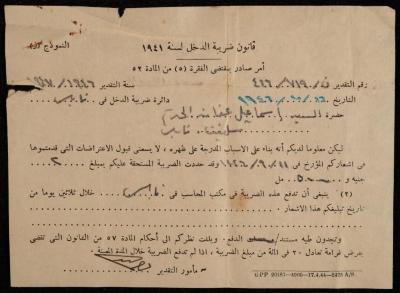 قانون ضريبة الدخل لسنة ١٩٤١
النموذج
أمر صادر بمقتضى الفقرة (٥) من المادة ٥٢
رقم التقدير ن/٧١٩/٤٤٦
سنة التقدير ١٩٤٧/١٩٤٦
التاريخ
دائرة ضريبة الدخل في نابلس
حضرة السيد
سلفيت نابلس
ليكن معلوما لديكم أنه بناء على الاسباب المدرجة على ظهره ، لا يسعني قبول الاعتراضات التي قدمتموها
في اشعاركم المؤرخ في ١١/٩/١٩٤٦ وقد حددت الضريبة المستحقة عليكم بمبلغ
جنيه و ٥٠٠ مل
(٢) ينبغي أن تدفع هذه الضريبة في مكتب المحاسب في نابلس خلال ثلاثين يوما من
تاريخ تبليغكم هذا الاشعار .
وتجدون طيه مستند/ الدفع . وبلفت نظركم الى أحكام المادة ٥٧ من القانون التي تقضي
بفرض غرامة تعادل ٢٠ في المائة من مبلغ الضريبة ، اذا لم تدفع الضريبة خلال المدة المعينة .
مأمور التقدير